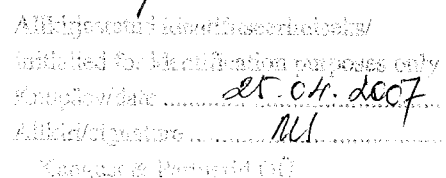 Allkirjastatud identifitseerimiseks/
initialled for identification purposes only
Kuupäev/date ........ 25.04.2007
Allkiri/signature ........
& Partnerid OÜ